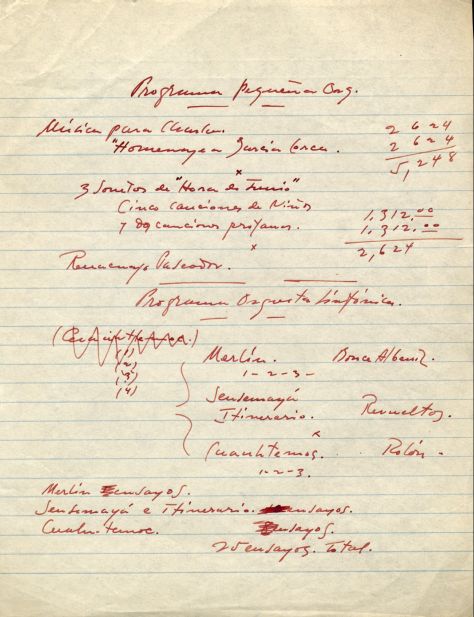 Programa pequeña Orq.
Música para Charlar.
"Homenaje a García Lorca.
2624
2624
5,248
x
3 Sonetos de "Hora de Junio"
Cinco canciones de Niños
y dos canciones profanas.
1,312.00
1,312.00
2,624
x
Renacuajo Paseador.
Programa Orquesta Sinfónica.
(1)
(2)
(3)
(4)
Merlín. Albeniz.
1-2-3-
Sensemayá
Itinerario. Revueltas.
x
Cuauhtemoc. Rolón-
1-2-3.
Merlín Ensayos.
Sensemayá e Itinerario. ensayos.
Cuauhtemoc. Ensayos.
25 ensayos. Total.